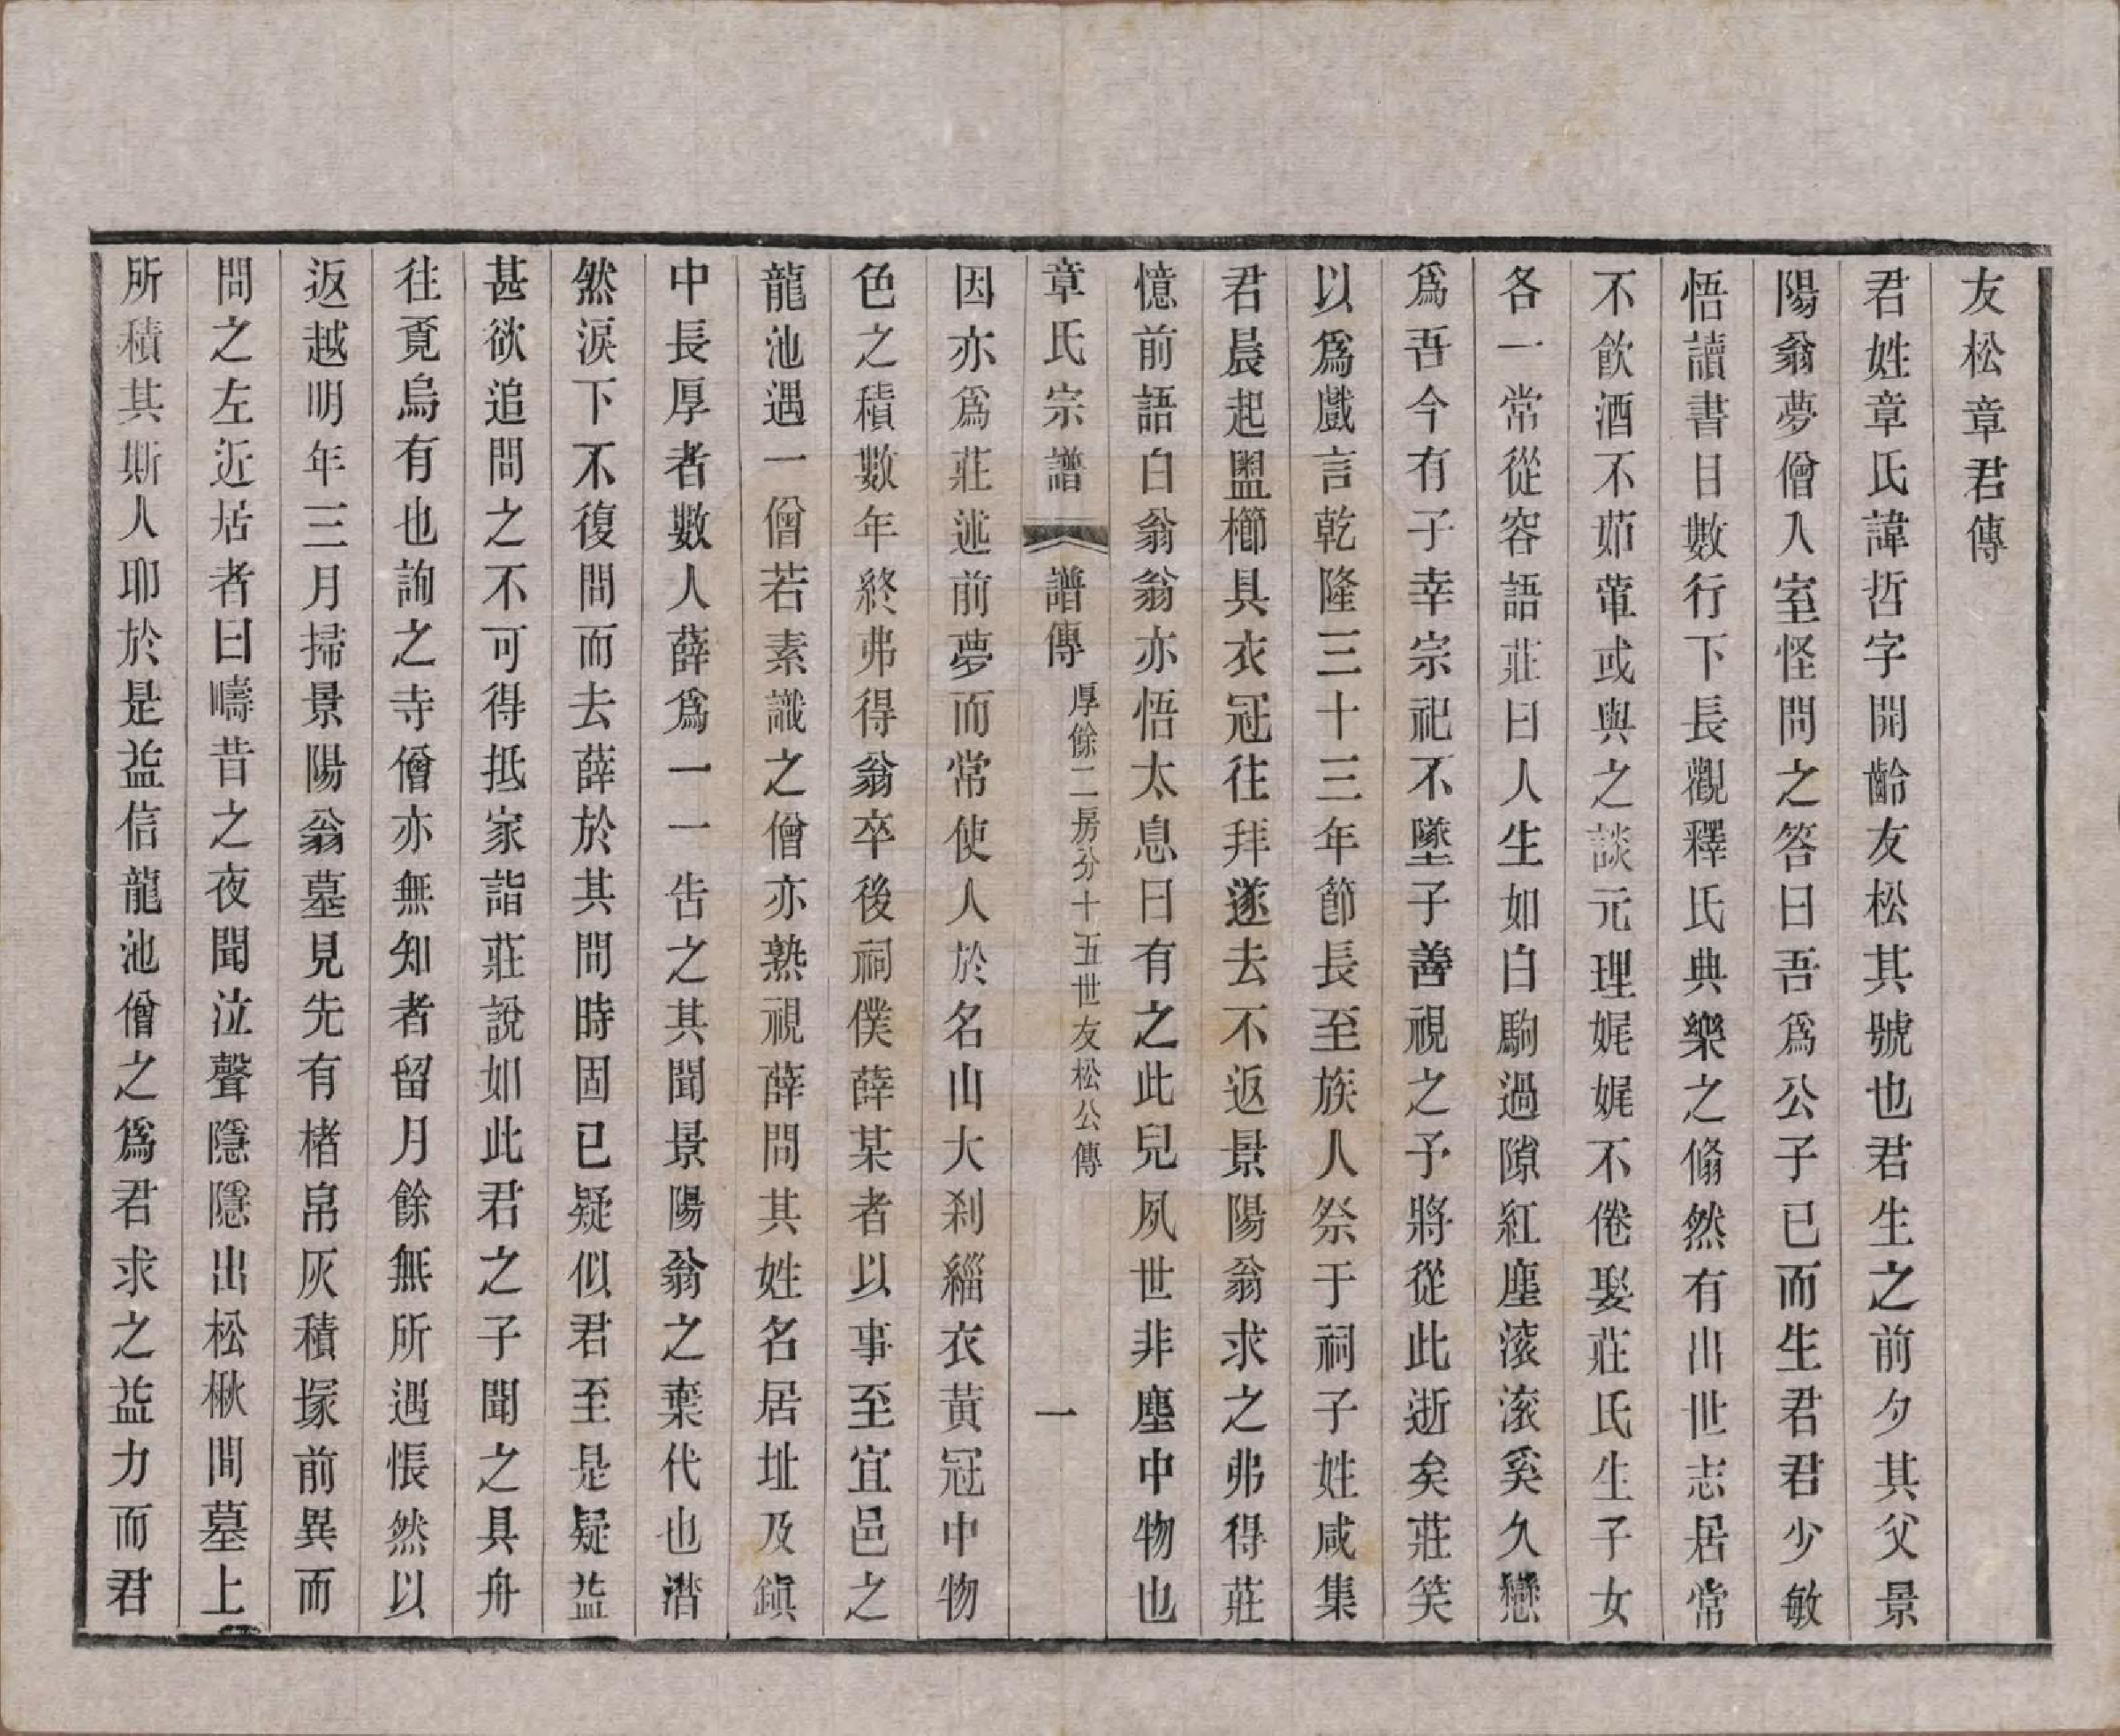 友松章君傳
君姓章氏諱哲字開齡友松其號也君生之前夕其父景
陽翁夢僧入室怪問之答曰吾爲公子已而生君君少敏
悟讀書日數行下長觀釋氏典樂之翛然有出世志居常
不飲酒不茹葷或與之談元理娓娓不倦娶莊氏生子女
各一常從容語莊曰人生如白駒過隙紅塵滚滚奚久戀
爲吾今有子幸宗祀不墜子善視之予將從此逝矣莊笑
以爲戲言乾隆三十三年節長至族人祭于祠子姓咸集
君晨起盥櫛具衣冠往拜遂去不返景陽翁求之弗得莊
憶前語白翁翁亦悟太息曰有之此兒夙世非塵中物也
章氏宗譜 譜傳 厚餘二房分十五世友松公傳 一
因亦爲莊述前夢而常使人於名山大刹緇衣黃冠中物
色之積數年終弗得翁卒後祠僕薛某者以事至宜邑之
龍池遇一僧若素識之僧亦熟視薛問其姓名居址及鎭
中長厚者數人薛爲一一告之其聞景陽翁之棄代也潸
然淚下不復問而去薛於其問時固已疑似君至是疑益
甚欲追問之不可得抵家詣莊說如此君之子聞之具舟
往覓烏有也詢之寺僧亦無知者留月餘無所遇悵然以
返越明年三月掃景陽翁墓見先有楮帛灰積塚前異而
問之左近居者曰疇昔之夜聞泣聲隱隱出松楸間墓上
所積其斯人耶於是益信龍池僧之爲君求之益力而君